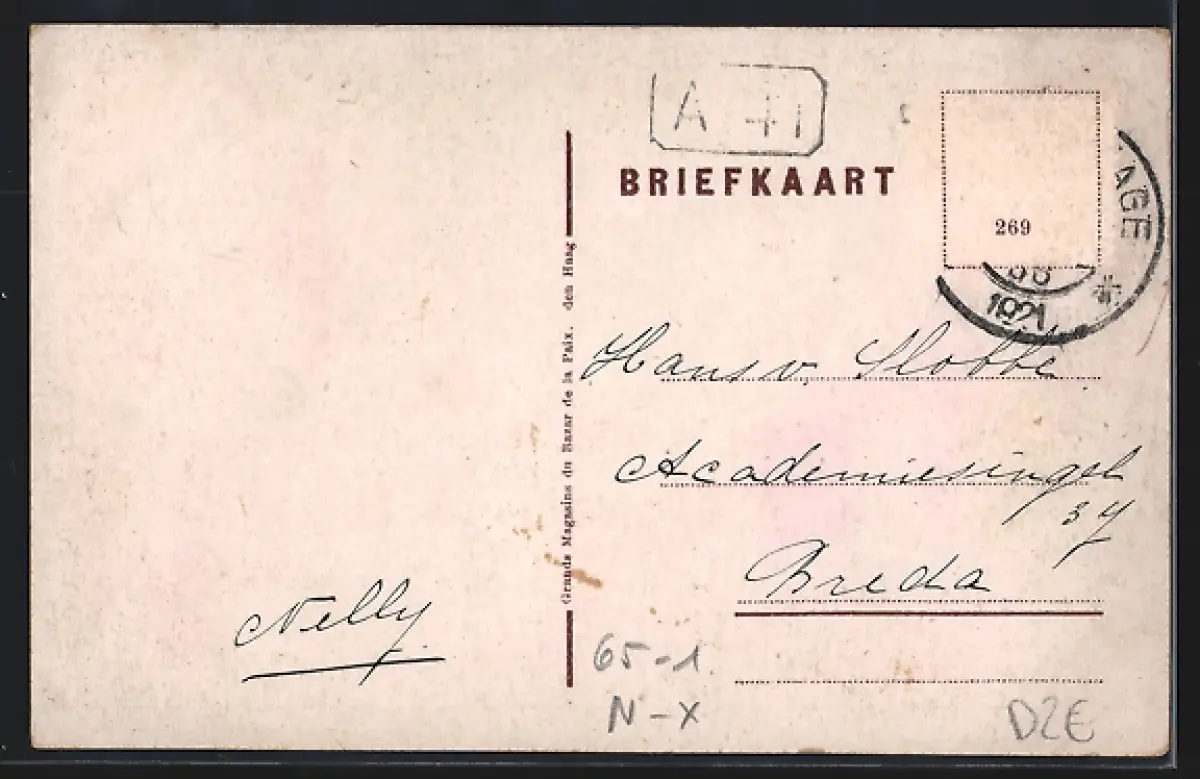 A 41
BRIEFKAART
AGE
269
1921
Grands Magasins du Bazar de la Paix. den Haag
Hans v. Slobbe
Academiesingel
37
Breda
Nelly
65-1
N-X
D2E